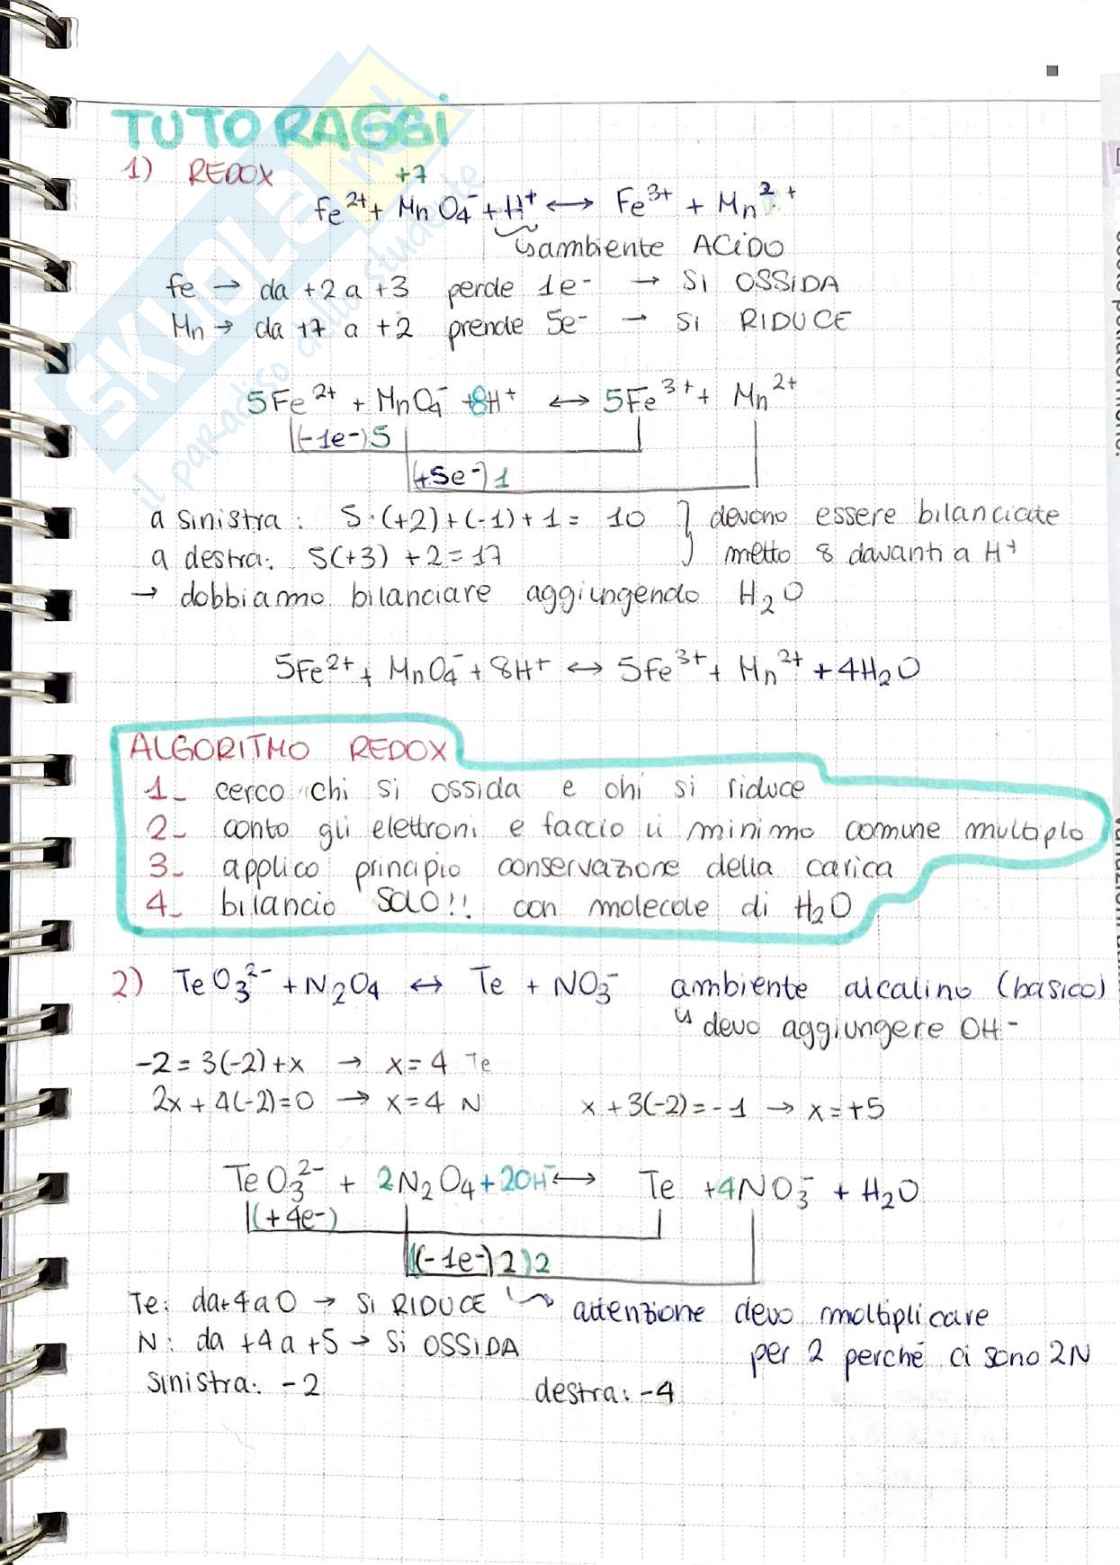 TUTORAGGI
1) REDOX
+7
Fe²⁺ + MnO₄⁻ + H⁺ ↔ Fe³⁺ + Mn²⁺
↳ ambiente ACIDO
Fe → da +2 a +3 perde 1e⁻ → SI OSSIDA
Mn → da +7 a +2 prende 5e⁻ → SI RIDUCE
5Fe²⁺ + MnO₄⁻ +8H⁺ ↔ 5Fe³⁺ + Mn²⁺
(-1e⁻)5
(+5e⁻)1
a sinistra: 5·(+2)+(-1)+1 = 10 } devono essere bilanciate
a destra: 5(+3)+2=17 metto 8 davanti a H⁺
→ dobbiamo bilanciare aggiungendo H₂O
5Fe²⁺ + MnO₄⁻ + 8H⁺ ↔ 5Fe³⁺ + Mn²⁺ + 4H₂O
ALGORITMO REDOX
1_ cerco chi si ossida e chi si riduce
2- conto gli elettroni e faccio il minimo comune multiplo
3- applico principio conservazione della carica
4_ bilancio SOLO!! con molecole di H₂O
2) TeO₃²⁻ + N₂O₄ ↔ Te + NO₃⁻ ambiente alcalino (basico)
↳ devo aggiungere OH⁻
-2 = 3(-2)+x → x=4 Te
2x+4(-2)=0 → x=4 N x+3(-2)=-1 → x=+5
TeO₃²⁻ + 2N₂O₄ +2OH⁻ ↔ Te +4NO₃⁻ + H₂O
(+4e⁻)
((-1e⁻)2)2
Te: da +4 a 0 → SI RIDUCE ↳ attenzione devo moltiplicare
N: da +4 a +5 → SI OSSIDA per 2 perché ci sono 2N
sinistra: -2 destra: -4
SKUOLA.net
il paradiso dello studente